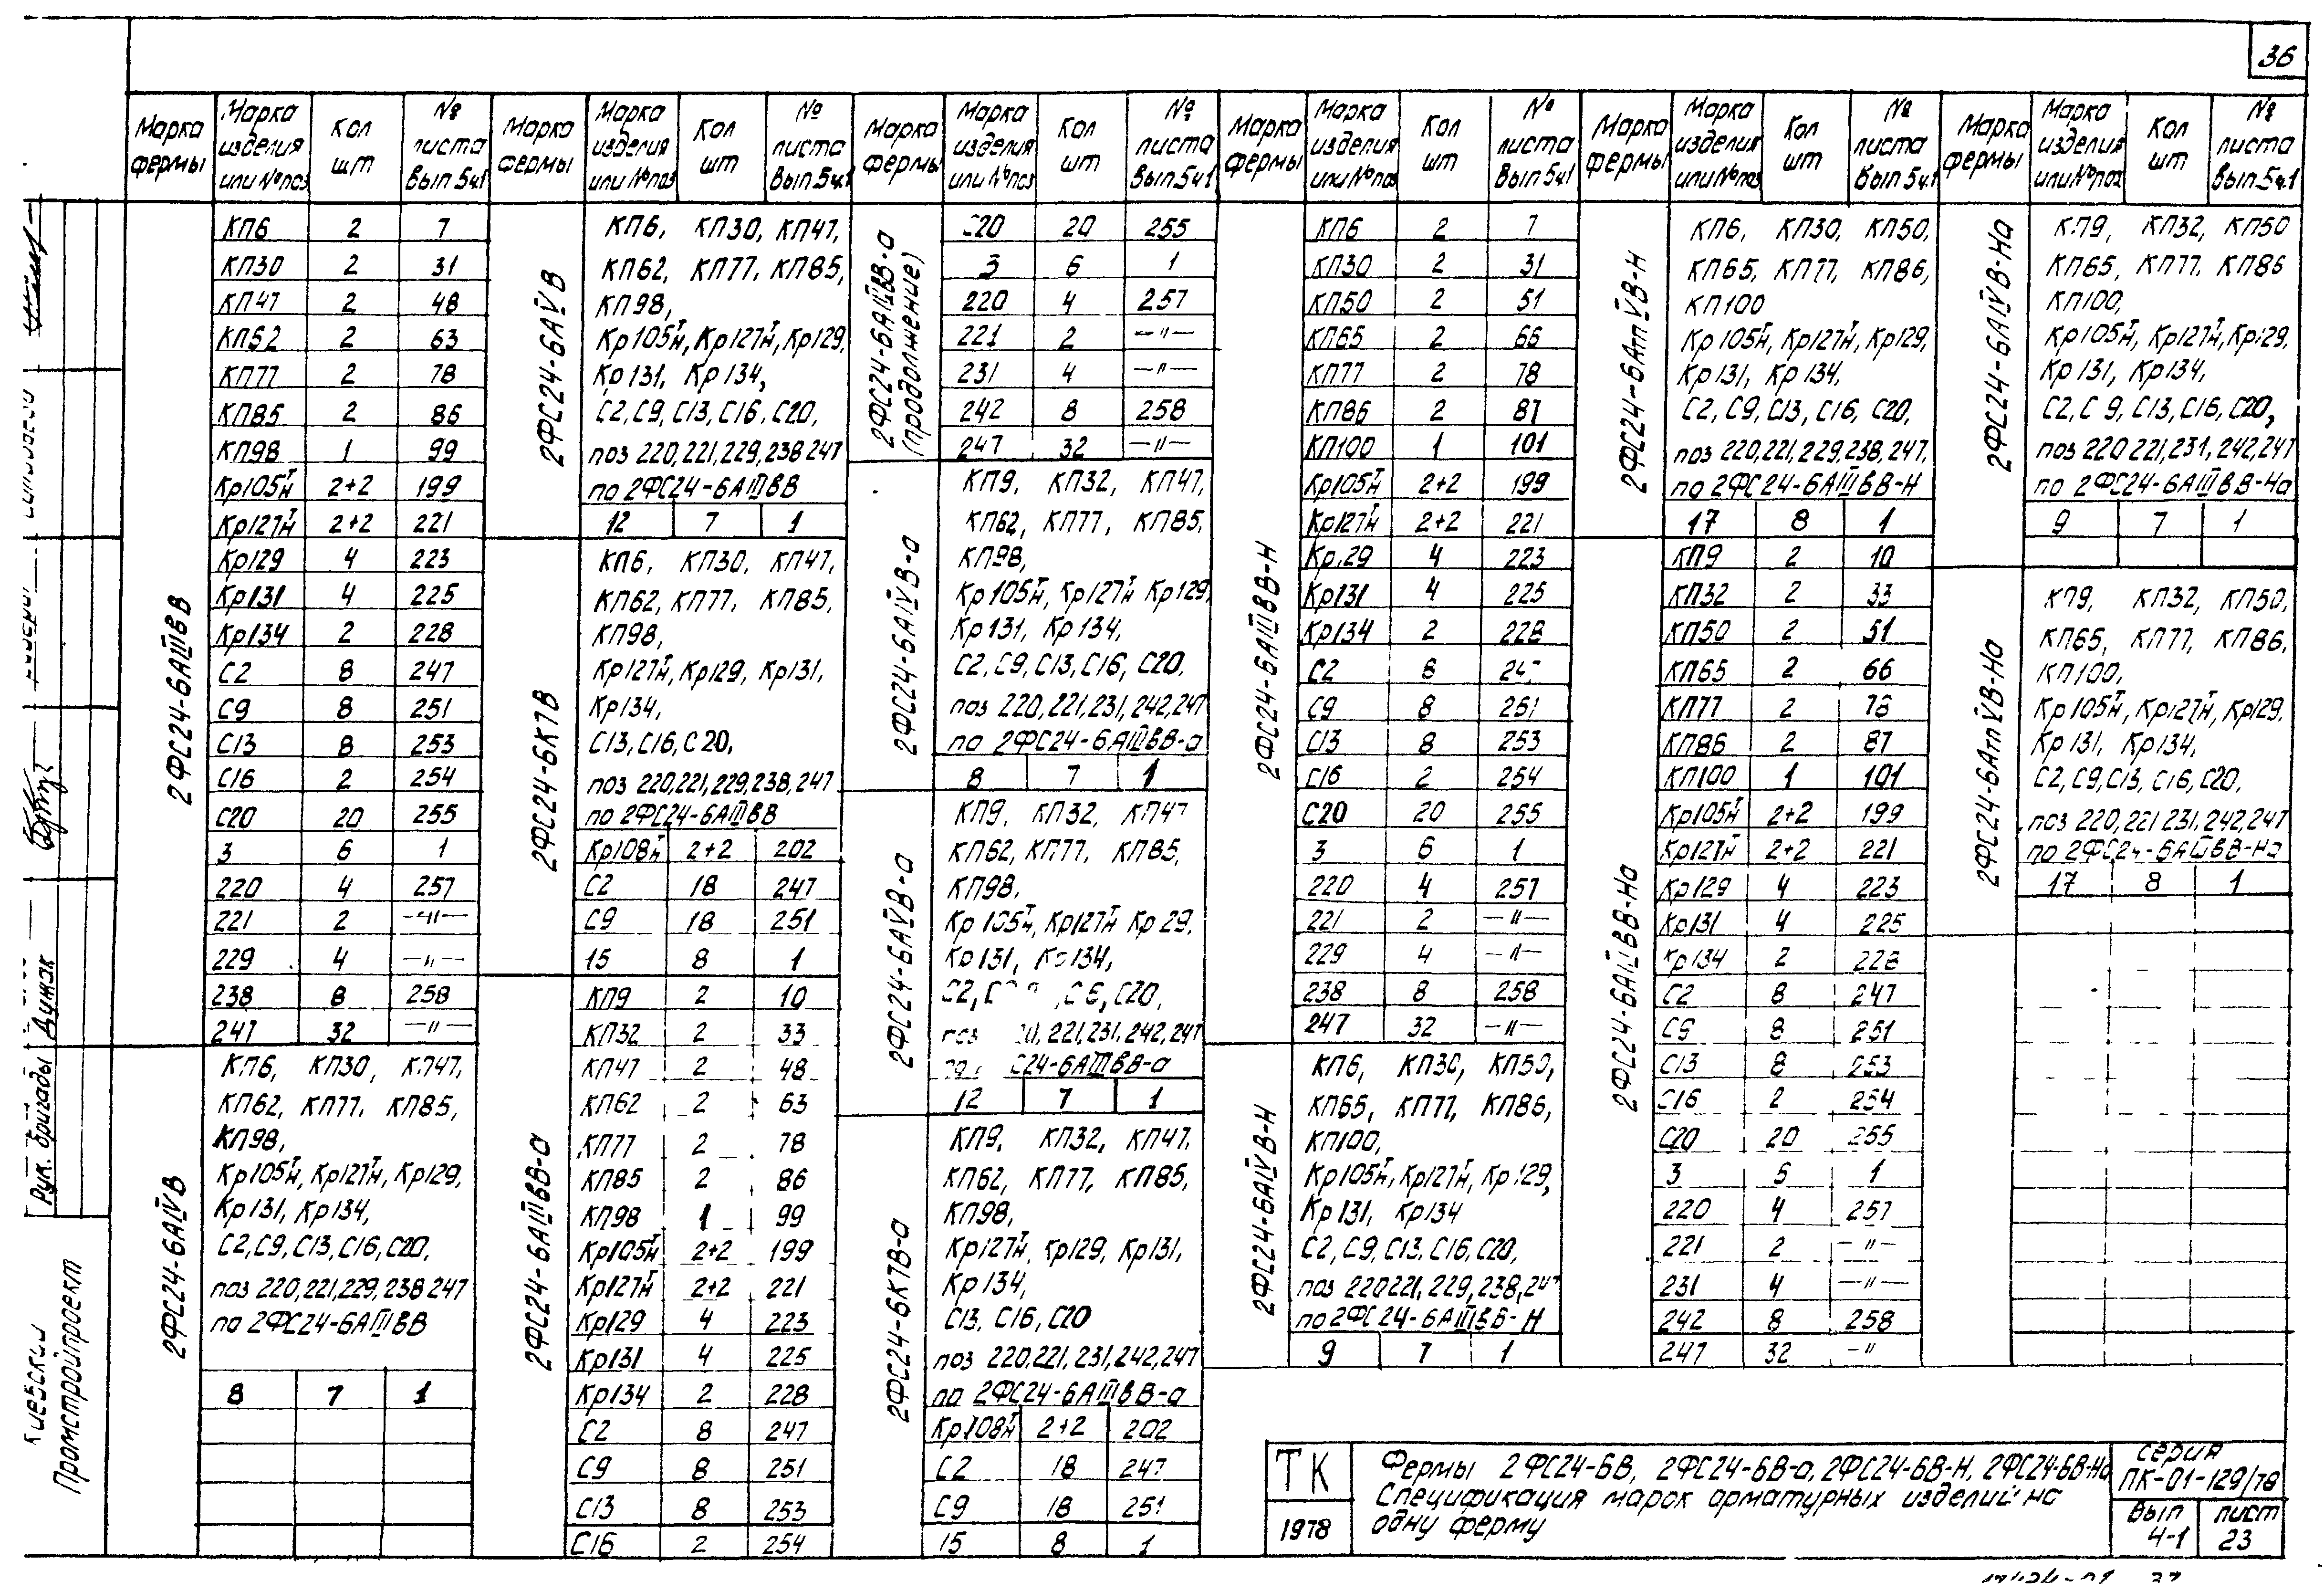 36
Марка фермы | Марка изделия или № поз | Кол шт | № листа Вып 5 ч.1
2ФС24-6АШвВ
КП6 2 7
КП30 2 31
КП47 2 48
КП62 2 63
КП77 2 78
КП85 2 86
КП98 1 99
Кр105Т/Н 2+2 199
Кр127Т/Н 2+2 221
Кр129 4 223
Кр131 4 225
Кр134 2 228
С2 8 247
С9 8 251
С13 8 253
С16 2 254
С20 20 255
3 6 1
220 4 257
221 2 —"—
229 4 —"—
238 8 258
247 32 —"—
2ФС24-6АIVВ
КП6, КП30, КП47,
КП62, КП77, КП85,
КП98,
Кр105Т/Н, Кр127Т/Н, Кр129,
Кр131, Кр134,
С2, С9, С13, С16, С20,
поз 220, 221, 229, 238 247
по 2ФС24-6АIIIвВ
8 7 1
Марка фермы | Марка изделия или № поз | Кол шт | № листа Вып 5 ч.1
2ФС24-6АVВ
КП6, КП30, КП47,
КП62, КП77, КП85,
КП98,
Кр105Т/Н, Кр127Т/Н, Кр129,
Кр131, Кр134,
С2, С9, С13, С16, С20,
поз 220, 221, 229, 238 247
по 2ФС24-6АIIIвВ
12 7 1
2ФС24-6К7В
КП6, КП30, КП47,
КП62, КП77, КП85,
КП98,
Кр127Т/Н, Кр129, Кр131,
Кр134,
С13, С16, С20,
поз 220, 221, 229, 238, 247
по 2ФС24-6АIIIвВ
Кр108Т/Н 2+2 202
С2 18 247
С9 18 251
15 8 1
2ФС24-6АIIIвВ-а
КП9 2 10
КП32 2 33
КП47 2 48
КП62 2 63
КП77 2 78
КП85 2 86
КП98 1 99
Кр105Т/Н 2+2 199
Кр127Т/Н 2+2 221
Кр129 4 223
Кр131 4 225
Кр134 2 228
С2 8 247
С9 8 251
С13 8 253
С16 2 254
Марка фермы | Марка изделия или № поз | Кол шт | № листа Вып 5 ч1
2ФС24-6АIIIвВ-а
(продолжение)
С20 20 255
3 6 1
220 4 257
221 2 —"—
231 4 —"—
242 8 258
247 32 —"—
2ФС24-6АIVВ-а
КП9, КП32, КП47,
КП62, КП77, КП85,
КП98,
Кр105Т/Н, Кр127Т/Н Кр129,
Кр131, Кр134,
С2, С9, С13, С16, С20,
поз 220, 221, 231, 242, 247
по 2ФС24-6АIIIвВ-а
8 7 1
2ФС24-6АVВ-а
КП9, КП32, КП47
КП62, КП77, КП85,
КП98,
Кр105Т/Н, Кр127Т/Н Кр 29,
Кр131, Кр134,
С2, С20,
221, 231, 242, 247
С24-6АIIIвВ-а
12 7 1
2ФС24-6К7В-а
КП9, КП32, КП47,
КП62, КП77, КП85,
КП98,
Кр127Т/Н, Кр129, Кр131,
Кр134,
С13, С16, С20
поз 220, 221, 231, 242, 247
по 2ФС24-6АIIIвВ-а
Кр108Т/Н 2+2 202
С2 18 247
С9 18 251
15 8 1
Марка фермы | Марка изделия или № поз | Кол шт | № листа Вып 5 ч1
2ФС24-6АIIIвВ-Н
КП6 2 7
КП30 2 31
КП50 2 51
КП65 2 66
КП77 2 78
КП86 2 87
КП100 1 101
Кр105Т/Н 2+2 199
Кр127Т/Н 2+2 221
Кр129 4 223
Кр131 4 225
Кр134 2 228
С2 8
С9 8 251
С13 8 253
С16 2 254
С20 20 255
3 6 1
220 4 257
221 2 —"—
229 4 —"—
238 8 258
247 32 —"—
2ФС24-6АIVВ-Н
КП6, КП30, КП50,
КП65, КП77, КП86,
КП100,
Кр105Т/Н, Кр127Т/Н, Кр129,
Кр131, Кр134
С2, С9, С13, С16, С20,
поз 220 221, 229, 238, 247
по 2ФС24-6АIIIвВ-Н
9 7 1
Марка фермы | Марка изделия или № поз | Кол шт | № листа Вып 5 ч.1
2ФС24-6АтпVВ-Н
КП6, КП30, КП50,
КП65, КП77, КП86,
КП100
Кр105Т/Н, Кр127Т/Н, Кр129,
Кр131, Кр134,
С2, С9, С13, С16, С20,
поз 220, 221, 229, 238, 247,
по 2ФС24-6АIIIвВ-Н
17 8 1
2ФС24-6АIIIвВ-На
КП9 2 10
КП32 2 33
КП50 2 51
КП65 2 66
КП77 2 78
КП86 2 87
КП100 1 101
Кр105Т/Н 2+2 199
Кр127Т/Н 2+2 221
Кр129 4 223
Кр131 4 225
Кр134 2 228
С2 8 247
С9 8 251
С13 8 253
С16 2 254
С20 20 255
3 6 1
220 4 257
221 2 —"—
231 4 —"—
242 8 258
247 32 —"
Марка фермы | Марка изделия или № поз | Кол шт | № листа Вып. 5 ч.1
2ФС24-6АIVВ-На
КП9, КП32, КП50
КП65, КП77, КП86
КП100,
Кр105Т/Н, Кр127Т/Н, Кр129,
Кр131, Кр134,
С2, С9, С13, С16, С20,
поз 220 221, 231, 242, 247
по 2ФС24-6АIIIвВ-На
9 7 1
2ФС24-6АтпVВ-На
КП9, КП32, КП50,
КП65, КП77, КП86,
КП100,
Кр105Т/Н, Кр127Т/Н, Кр129,
Кр131, Кр134,
С2, С9, С13, С16, С20,
поз 220, 221 231, 242, 247
по 2ФС24-6АIIIвВ-На
17 8 1
Рук. бригады Дужак
Киевский
Промстройпроект
ТК
1978
Фермы 2ФС24-6В, 2ФС24-6В-а, 2ФС24-6В-Н, 2ФС24-6В-На
Спецификация марок арматурных изделий на
одну ферму
серия
ПК-01-129/78
Вып
4-1
лист
23